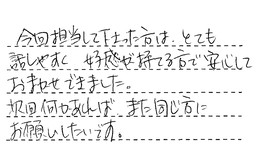 今回担当して下さった方は、とても
話しやすく 好感が持てる方で安心して
おまかせできました。
次回何かあれば また同じ方に
お願いしたいです。